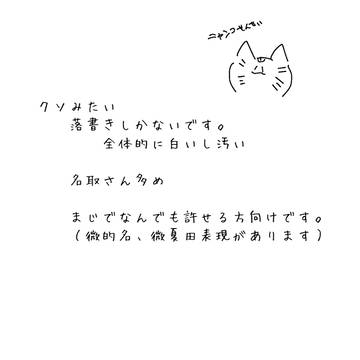 ニャンコせんせい
クソみたい
落書きしかないです。
全体的に白いし汚い
名取さん多め
まじでなんでも許せる方向けです。
(微的名、微夏田表現があります)